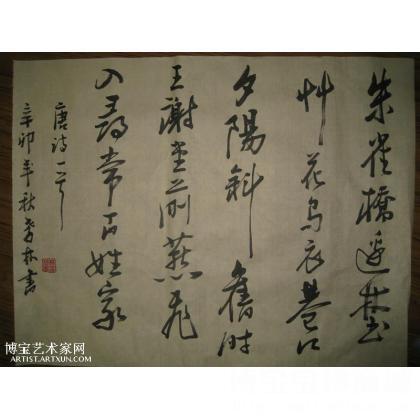 朱雀橋邊埜
艸花烏衣巷口
夕陽斜舊時
王謝堂前燕飛
入尋常百姓家
唐詩一首
辛卯年秋林書
博宝艺术家网
ARTIST.ARTXUN.COM